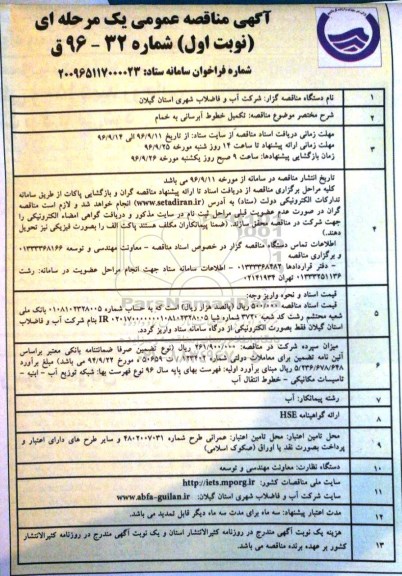 آگهی مناقصه عمومی یک مرحله ای
(نوبت اول) شماره ۳۲ - ۹۶ ق
شماره فراخوان سامانه ستاد: ۲۰۰۹۶۵۱۱۷۰۰۰۰۲۳
۱ نام دستگاه مناقصه گزار: شرکت آب و فاضلاب شهری استان گیلان
۲ شرح مختصر موضوع مناقصه: تکمیل خطوط آبرسانی به خمام
مهلت زمانی دریافت اسناد مناقصه از سایت ستاد: از تاریخ ۹۶/۹/۱۱ الی ۹۶/۹/۱۴
۳ مهلت زمانی ارائه پیشنهاد تا ساعت ۱۴ روز شنبه مورخه ۹۶/۹/۲۵
زمان بازگشایی پیشنهادها: ساعت ۹ صبح روز یکشنبه مورخه ۹۶/۹/۲۶
تاریخ انتشار مناقصه در سامانه از مورخه ۹۶/۹/۱۱ می باشد
کلیه مراحل برگزاری مناقصه از دریافت اسناد تا ارائه پیشنهاد مناقصه گران و بازگشایی پاکات از طریق سامانه
تدارکات الکترونیکی دولت (ستاد) به آدرس (www.setadiran.ir) انجام خواهد شد و لازم است مناقصه
گران در صورت عدم عضویت قبلی مراحل ثبت نام در سایت مذکور و دریافت گواهی امضاء الکترونیکی را
جهت شرکت در مناقصه محقق سازند. (ضمنا پیمانکاران مکلف هستند پاکت الف را بصورت فیزیکی نیز تحویل
دهند.)
۴ اطلاعات تماس دستگاه مناقصه گزار در خصوص اسناد مناقصه - معاونت مهندسی و توسعه ۰۱۳۳۳۳۶۸۱۶۶
و برگزاری مناقصه
- دفتر قراردادها ۰۱۳۳۳۳۶۸۴۸۲ - اطلاعات سامانه ستاد جهت انجام مراحل عضویت در سامانه: رشت
۰۱۳۳۳۲۵۱۱۳۶ تهران ۰۲۱۴۱۹۳۴
قیمت اسناد و نحوه واریز وجه:
۵ قیمت اسناد مناقصه ۵۰۰/۰۰۰ ریال (پانصد هزار ریال) است که به حساب شماره ۰۱۰۸۱۰۲۳۲۸۰۰۵ بانک ملی
شعبه محتشم رشت کد شعبه ۳۷/۲۰ شماره شبا IR ۰۲۰۱۷۰۰۰۰۰۰۰۱۰۸۱۰۲۳۲۸۰۰۵ بنام شرکت آب و فاضلاب
استان گیلان فقط بصورت الکترونیکی از درگاه سامانه ستاد واریز گردد.
میزان سپرده شرکت در مناقصه: ۲۶۱/۹۰۰/۰۰۰ ریال (نوع تضمین صرفا ضمانتنامه بانکی معتبر براساس
۶ آئین نامه تضمین برای معاملات دولتی شماره ۱۲۳۴۰۲/ت۵۰۶۵۹ ه مورخ ۹۴/۹/۲۲ می باشد) مبلغ برآورد
۵/۲۳۶/۶۷۸/۶۴۸ ریال مبنای برآورد اولیه: فهرست بهای پایه سال ۹۶ نوع فهرست بها: شبکه توزیع آب - ابنیه -
تاسیسات مکانیکی - خطوط انتقال آب
۷ رشته پیمانکار: آب
۸ ارائه گواهینامه HSE
۹ محل تامین اعتبار: محل تامین اعتبار: عمرانی طرح شماره ۴۸۰۲۰۰۷۰۳۱ و سایر طرح های دارای اعتبار و
پرداخت بصورت نقد یا اوراق (صکوک اسلامی)
۱۰ دستگاه نظارت: معاونت مهندسی و توسعه
۱۱ سایت ملی مناقصات کشور: http://iets.mporg.ir
سایت شرکت آب و فاضلاب شهری استان گیلان: www.abfa-guilan.ir
۱۲ مدت اعتبار پیشنهاد: سه ماه برای مدت سه ماه دیگر قابل تمدید می باشد.
۱۳ هزینه یک نوبت آگهی مندرج در روزنامه کثیرالانتشار استان و یک نوبت آگهی مندرج در روزنامه کثیرالانتشار
کشور بر عهده برنده مناقصه می باشد.